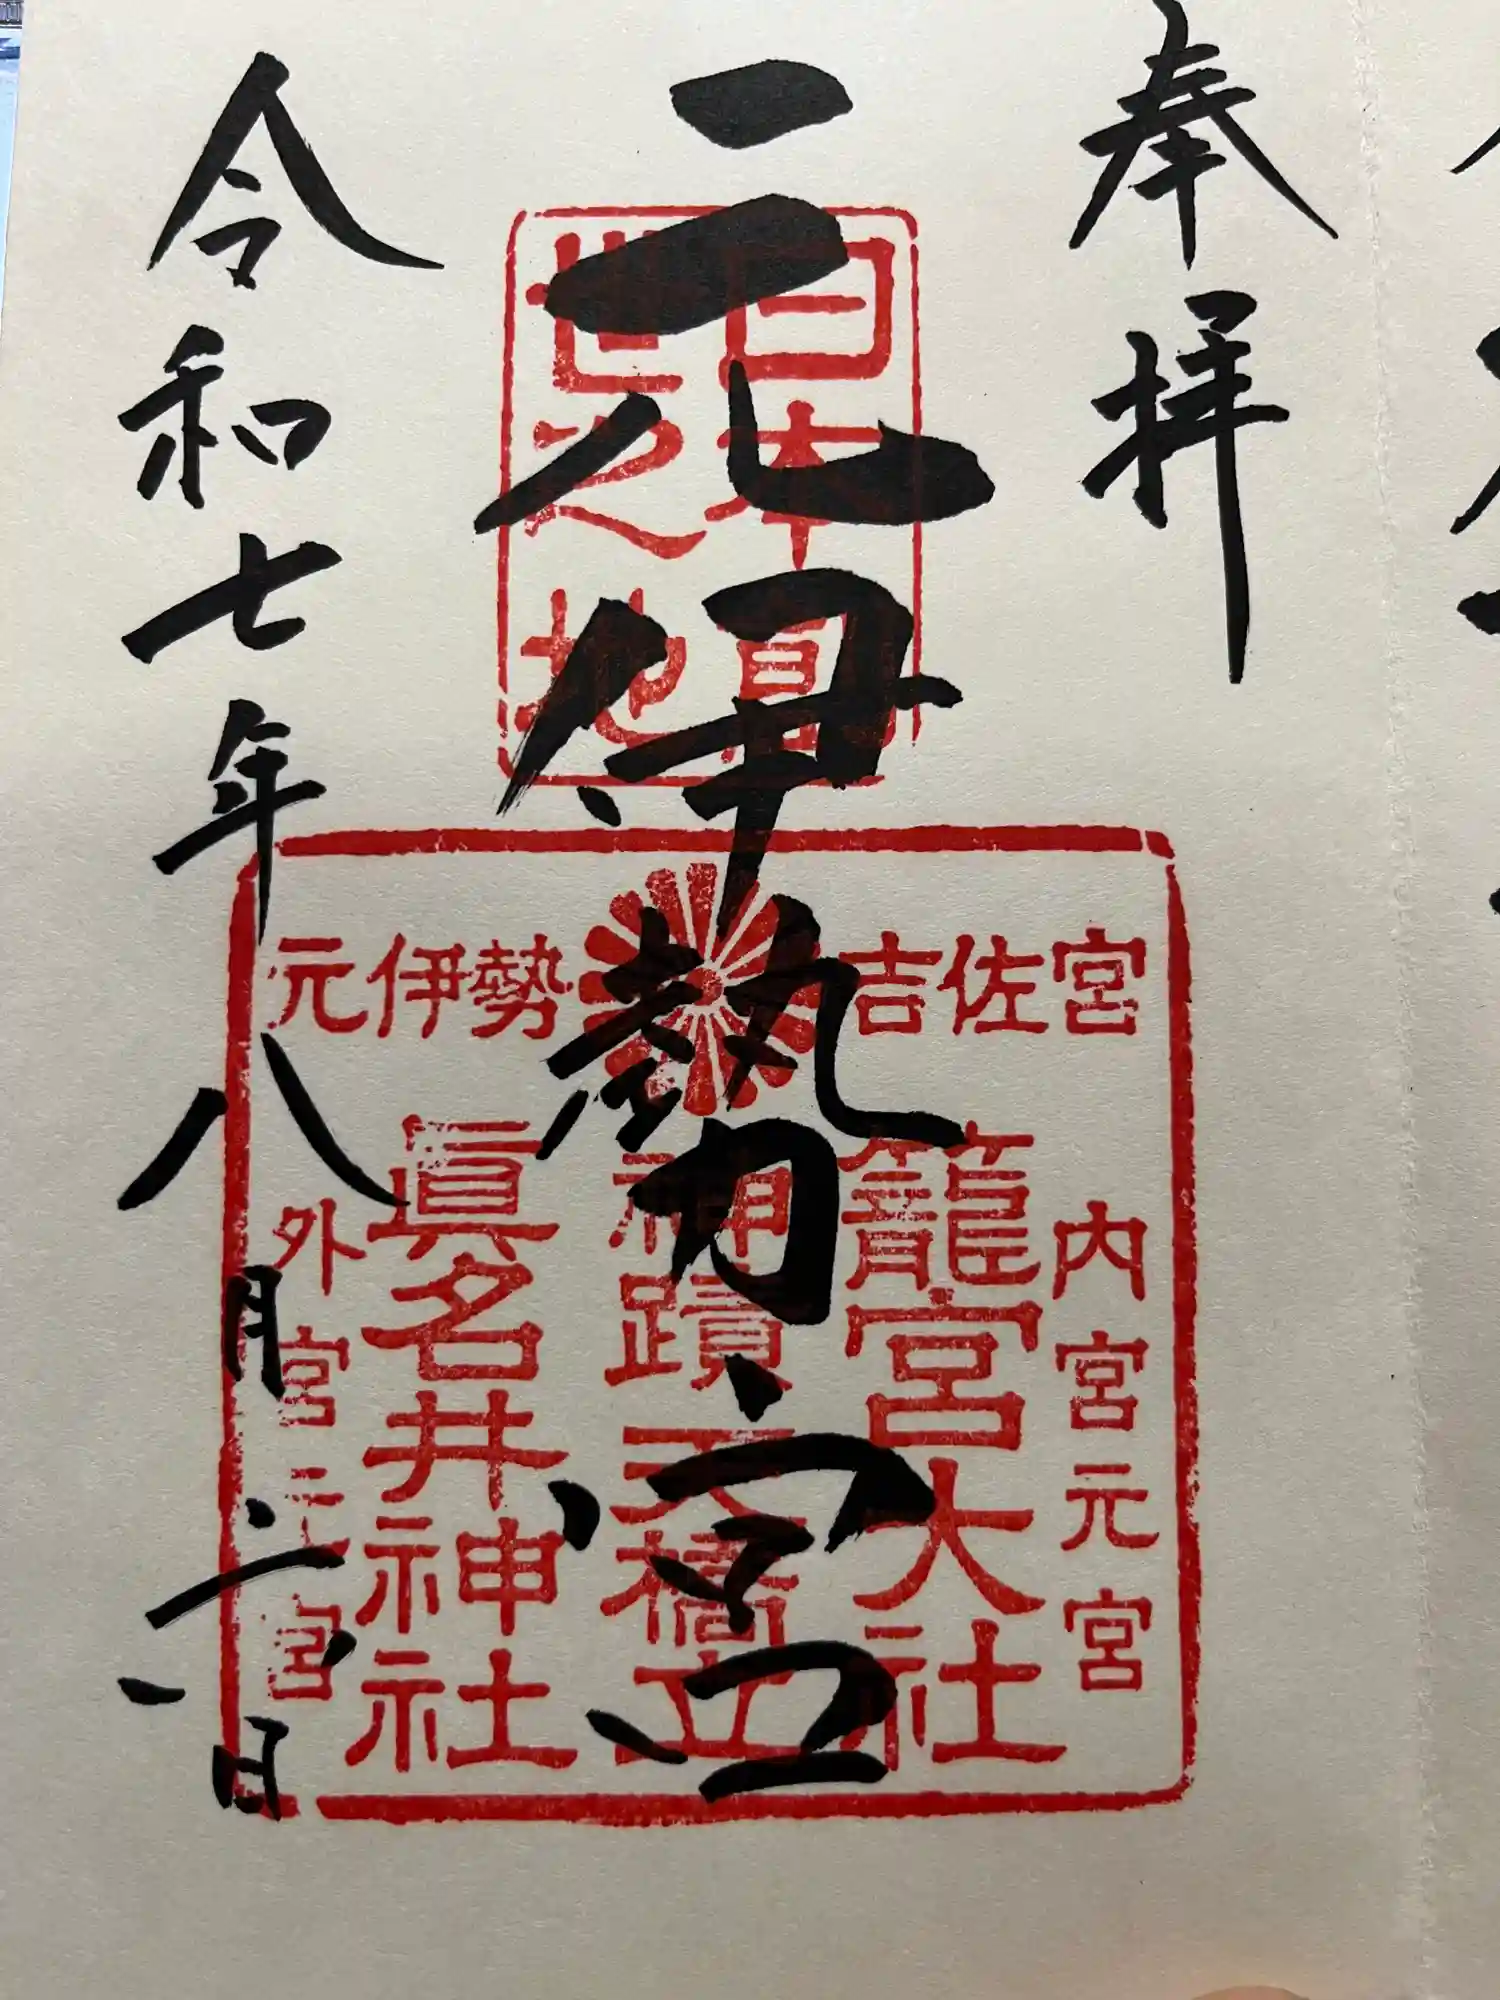 奉拝
元伊勢宮
令和七年八月六日
日本
世之地
元伊勢 吉佐宮
内宮元宮
籠宮大社
神蹟天橋立
眞名井神社
外宮元宮